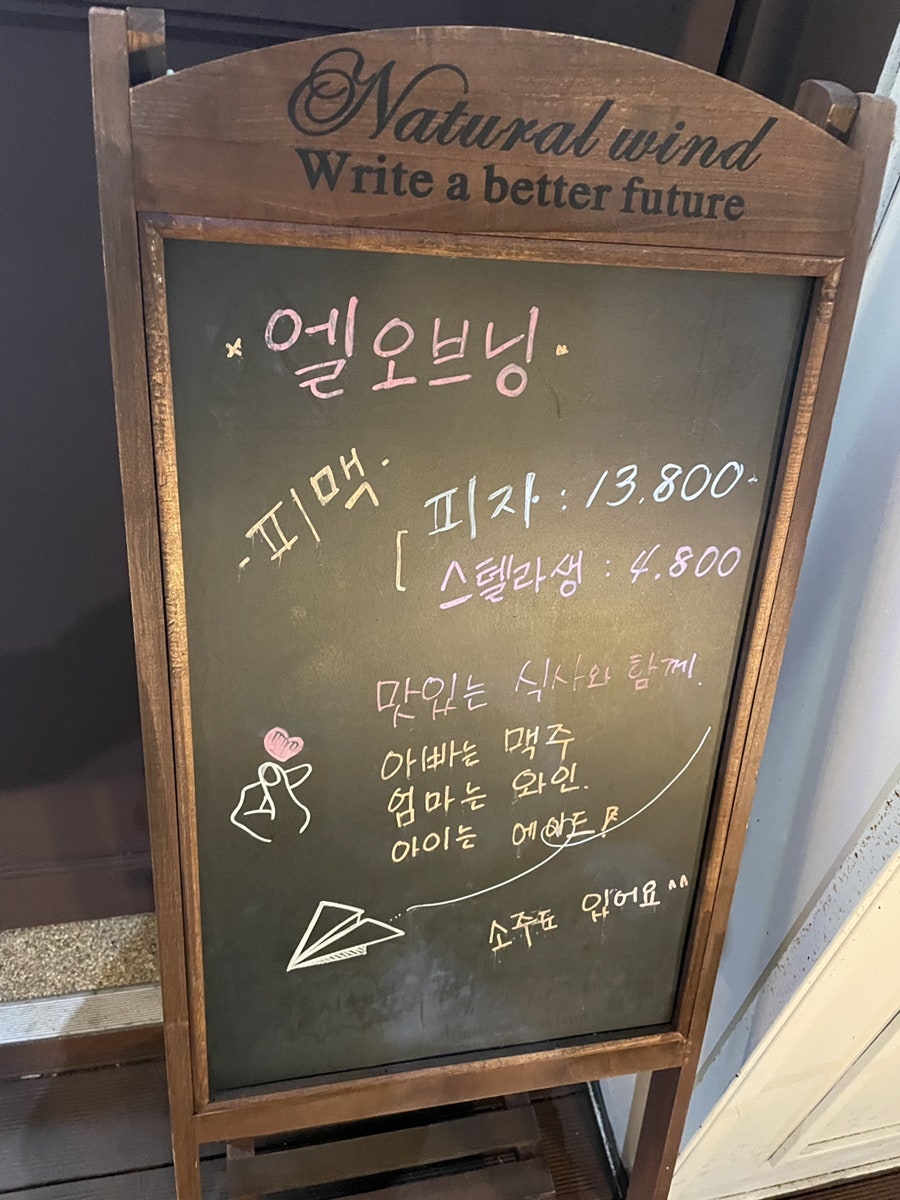 Natural wind
Write a better future
엘오브닝
-피맥-
피자 : 13.800-
스텔라생 : 4.800
맛있는 식사와 함께.
아빠는 맥주
엄마는 와인.
아이는 에이드!
소주도 있어요^^